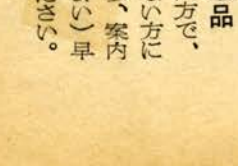 品
方で、
ない方に
、案内
い)早
ださい。